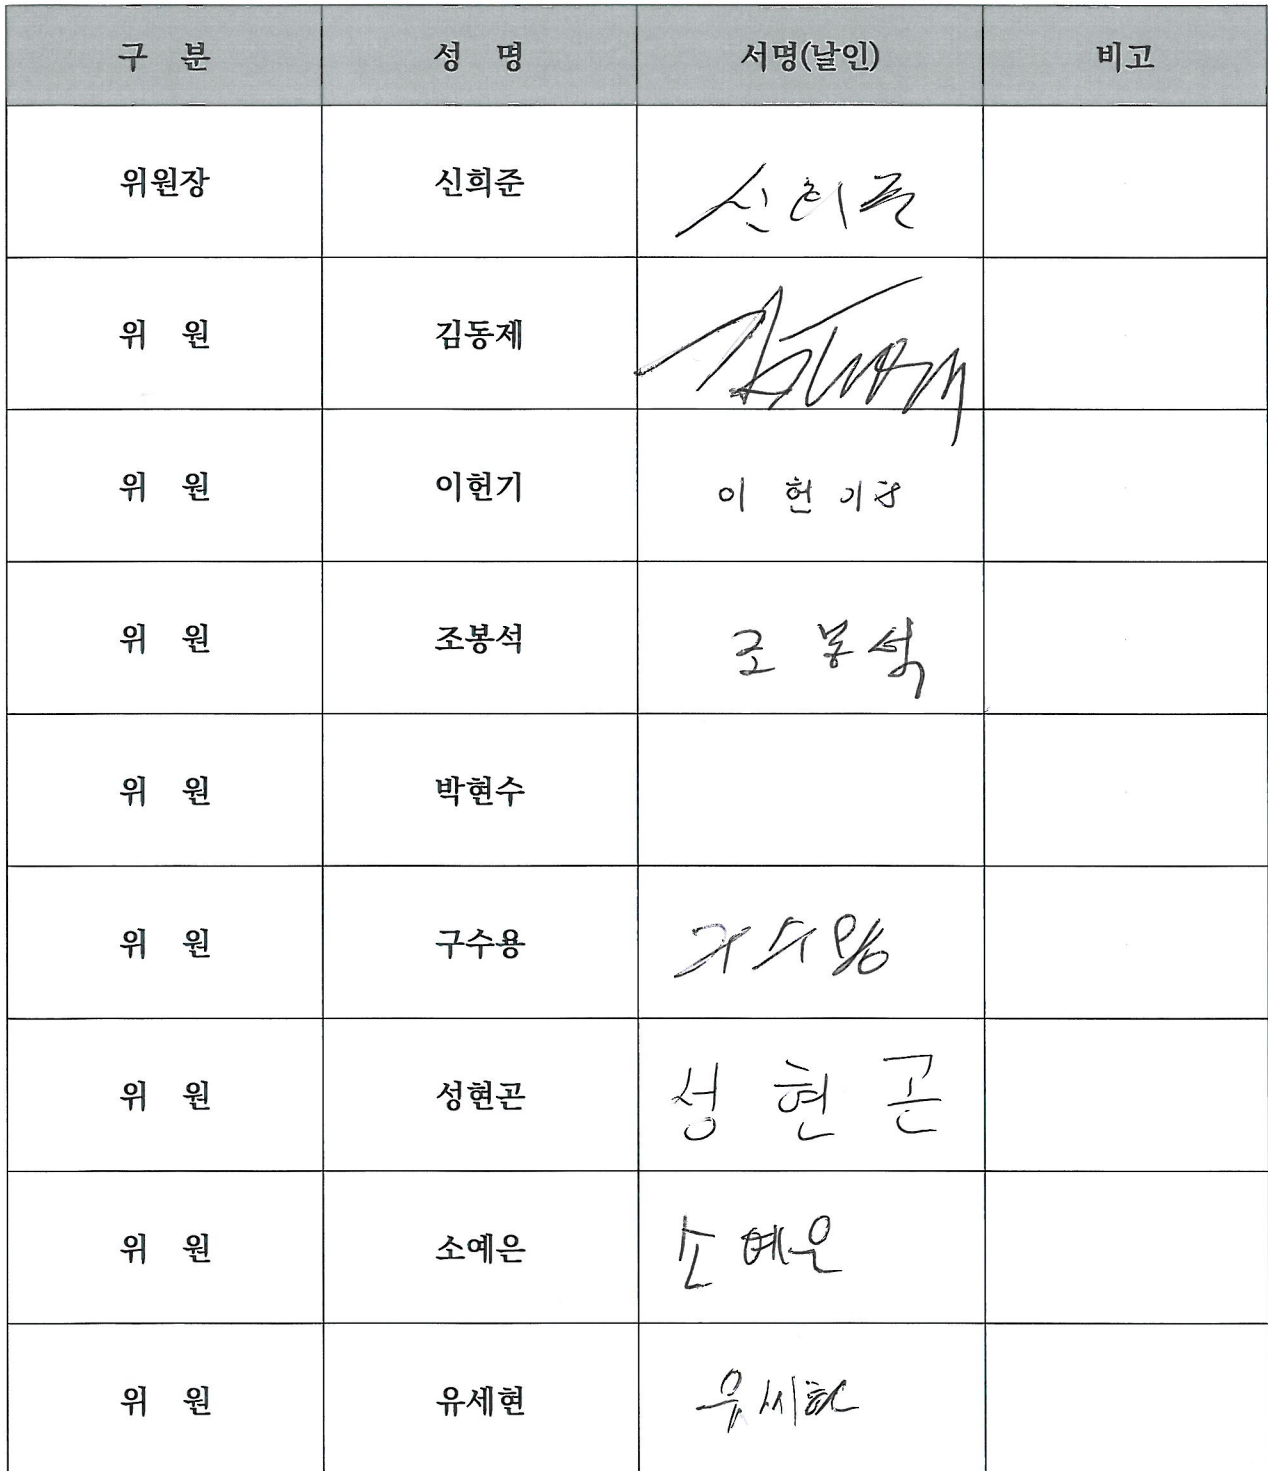 구 분 성 명 서명(날인) 비고
위원장 신희준 신희준
위 원 김동제
위 원 이헌기 이 헌 기
위 원 조봉석 조 봉 석
위 원 박현수
위 원 구수용 구수용
위 원 성현곤 성 현 곤
위 원 소예은 소예은
위 원 유세현 유세현